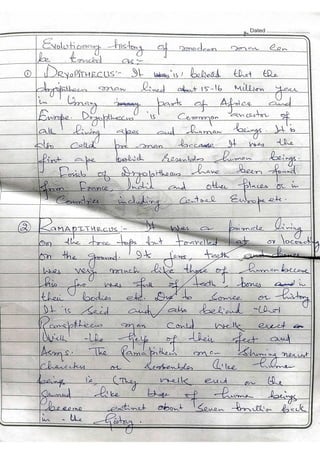 Dated
Evolutionary history of modern man can
be traced as:-
① DRYOPITHECUS:- It is believed that the
dryopithecus man lived about 15-16 Million year
in many parts of Africa and
Europe. Dryopithecus is common ancestor of
all living apes and human beings. It is
also called pre man because It was the
first ape which Resembles human beings.
Fossils of Dryopithecus have been found
from France, India and other places or in
Countries including Central Europe etc.
② RAMAPITHECUS:- It was a primate living
on the tree tops but travelled at or
on the ground. Its jaws, teeth and
was very much like those of human because
his five of teeth, bones in
their bodies etc. Due to some or history
It is said and also believed that
Ramapithecus man could walk erect
with the help of their feet and
Arms. The Ramapithecus man
character or Resembles like human
beings ie, (They walk erect on the
ground like of human beings
became extinct about Seven million back
in the history.